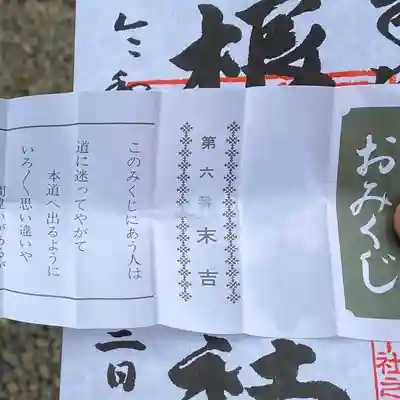 おみくじ
第六号 末吉
このみくじにあう人は
道に迷ってやがて
本道へ出るように
いろ〱思い違いや
令和
根
二日
社